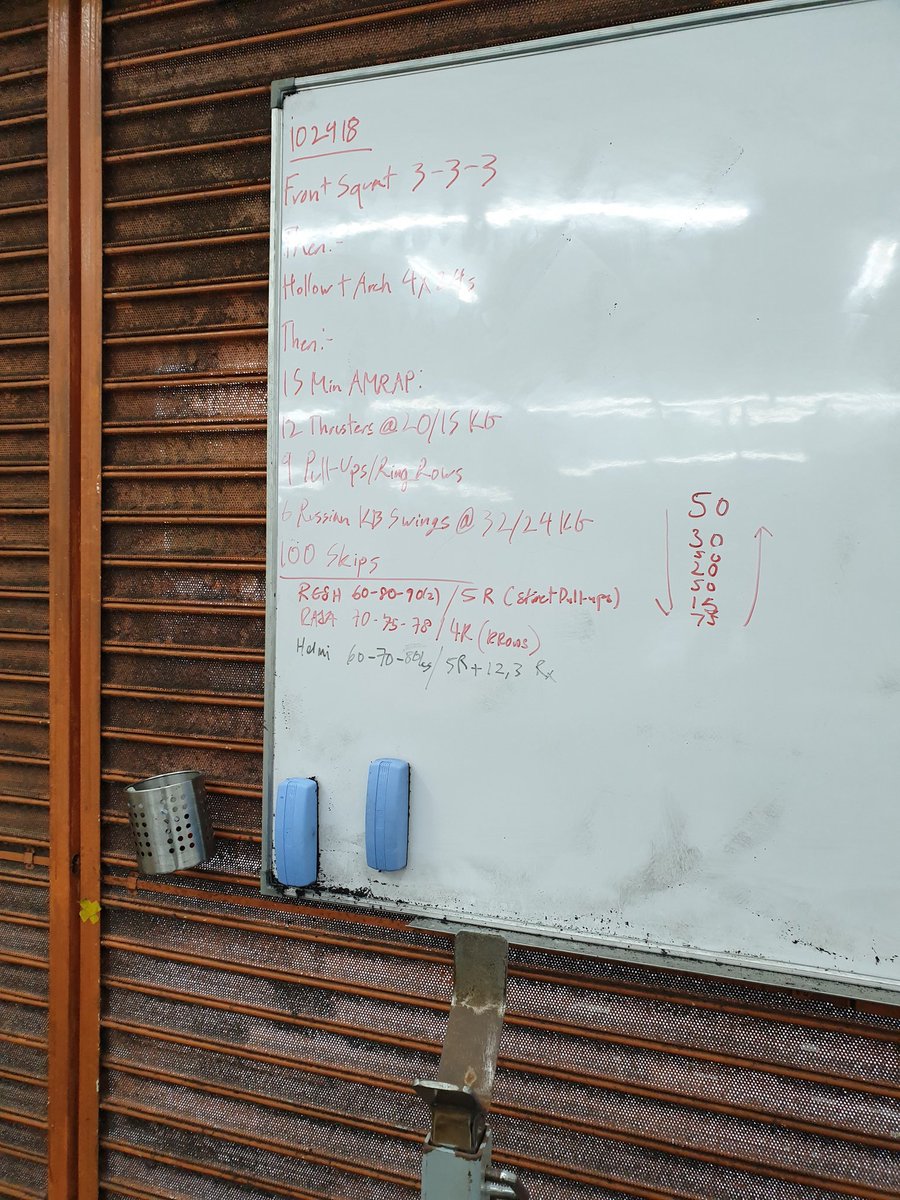 102918
Front Squat 3-3-3
Then:-
Hollow + Arch 4X
Then:-
15 Min AMRAP:
12 Thrusters @ 20/15 KG
9 Pull-Ups/Ring Rows
6 Russian KB Swings @ 32/24 KG
100 Skips
60-80-90(2) / 5R (strict Pull-ups)
RAJA 70-75-78 / 4R (RRows)
Helmi 60-70-80kg / 5R+12,3 Rx
50
30
50
20
50
15
75